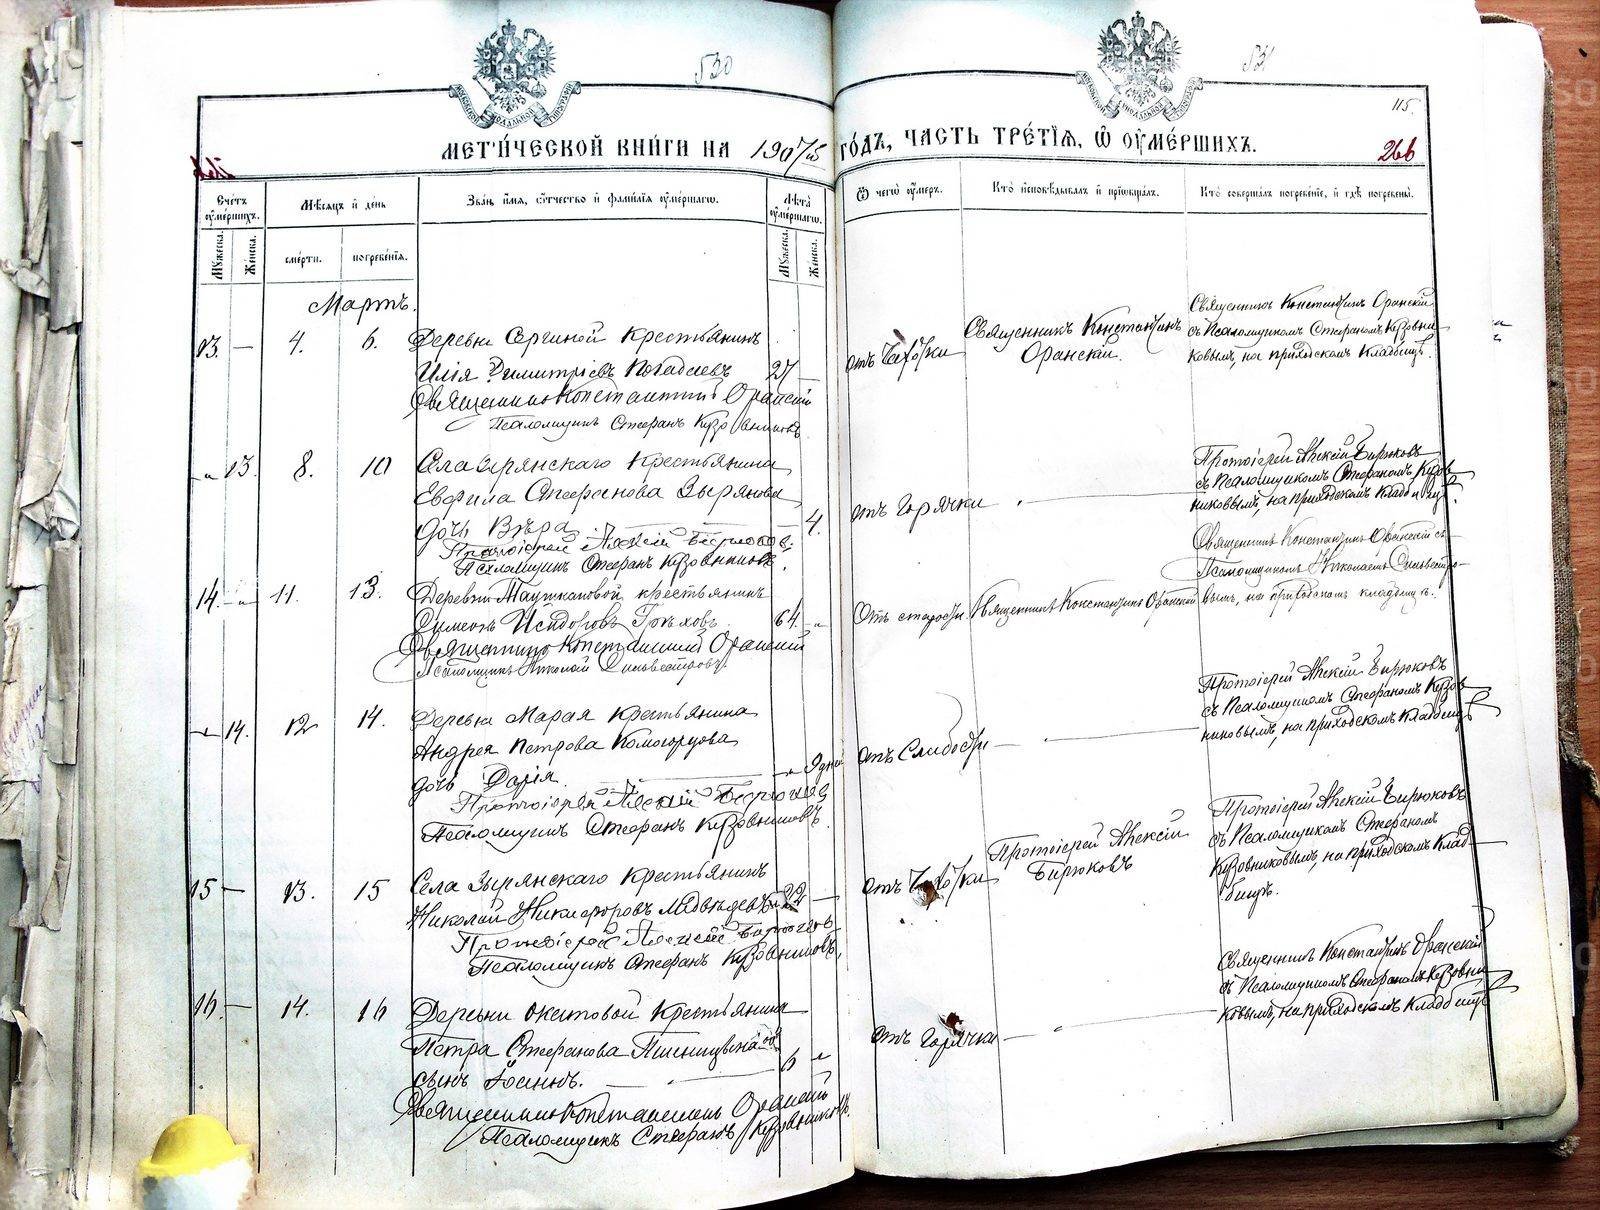 530
531
115.
МЕТРИ́ЧЕСКОЙ КНИ́ГИ НА 1907й ГО́ДЪ, ЧАСТЬ ТРЕ́ТІѦ, Ѡ ОУМЕ́РШИХЪ.
266
Сче́тъ оумершихъ.
Мѣсяцъ и день
Зва́н, и́мя, о́тчество и фами́лія оуме́ршагѡ.
Лѣта оуме́ршагѡ.
Ѿ чегѡ оумеръ.
Кто исповѣдывалъ и пріобщалъ.
Кто совершалъ погребеніе, и гдѣ погребены.
Мужеска.
Женска.
смерти.
погребенія.
Мужеска.
Женска.
Мартъ.
13. — 4. 6. Деревни Сергиной крестьянинъ
Илія Димитріевъ 27 —
Священникъ Константинъ Оранскій
Псаломщикъ Стефанъ Кузовниковъ
отъ Чахотки
Священникъ Константинъ
Оранскій.
Священникъ Константинъ Оранскій
съ Псаломщикомъ Стефаномъ Кузовни-
ковымъ, на приходскомъ кладбищѣ.
13. 8. 10 Села Зырянскаго крестьянина
Евфила Стефанова Зырянова
дочь Вѣра 4.
Протоіерей Алексій Бирюковъ
Псаломщикъ Стефанъ Кузовниковъ.
отъ Горячки
Протоіерей Алексій Бирюковъ
съ Псаломщикомъ Стефаномъ Кузов-
никовымъ, на приходскомъ кладбищѣ.
14. 11. 13. Деревни крестьянинъ
Симеонъ Исидоровъ Грѣховъ 64.
Священникъ Константинъ Оранскій
Псаломщикъ Николай Сильвестровъ
Отъ старости
Священникъ Константинъ Оранскій
Священникъ Константинъ Оранскій съ
Псаломщикомъ Николаемъ Сильвестро-
вымъ, на приходскомъ кладбищѣ.
14. 12 14. Деревни Марая крестьянина
Андрея Петрова Комогорцова
дочь Дарія 9 дней
Протоіерей Алексій Бирюковъ
Псаломщикъ Стефанъ Кузовниковъ.
отъ Слабости —
Протоіерей Алексій Бирюковъ
съ Псаломщикомъ Стефаномъ Кузов-
никовымъ, на приходскомъ кладбищѣ
15 — 13. 15 Села Зырянскаго крестьянинъ
Николай Никифоровъ Медвѣдевъ 22 —
Протоіерей Алексій Бирюковъ
Псаломщикъ Стефанъ Кузовниковъ.
отъ Чахотки
Протоіерей Алексій
Бирюковъ
Протоіерей Алексій Бирюковъ
съ Псаломщикомъ Стефаномъ
Кузовниковымъ, на приходскомъ клад-
бищѣ.
16. — 14. 16 Деревни Окатовой крестьянина
Петра Стефанова
сынъ Іоаннъ. 6
Священникъ Константинъ Оранскій
Псаломщикъ Стефанъ Кузовниковъ.
отъ Горячки —
Священникъ Константинъ Оранскій
съ Псаломщикомъ Стефаномъ Кузовни-
ковымъ, на приходскомъ кладбищѣ